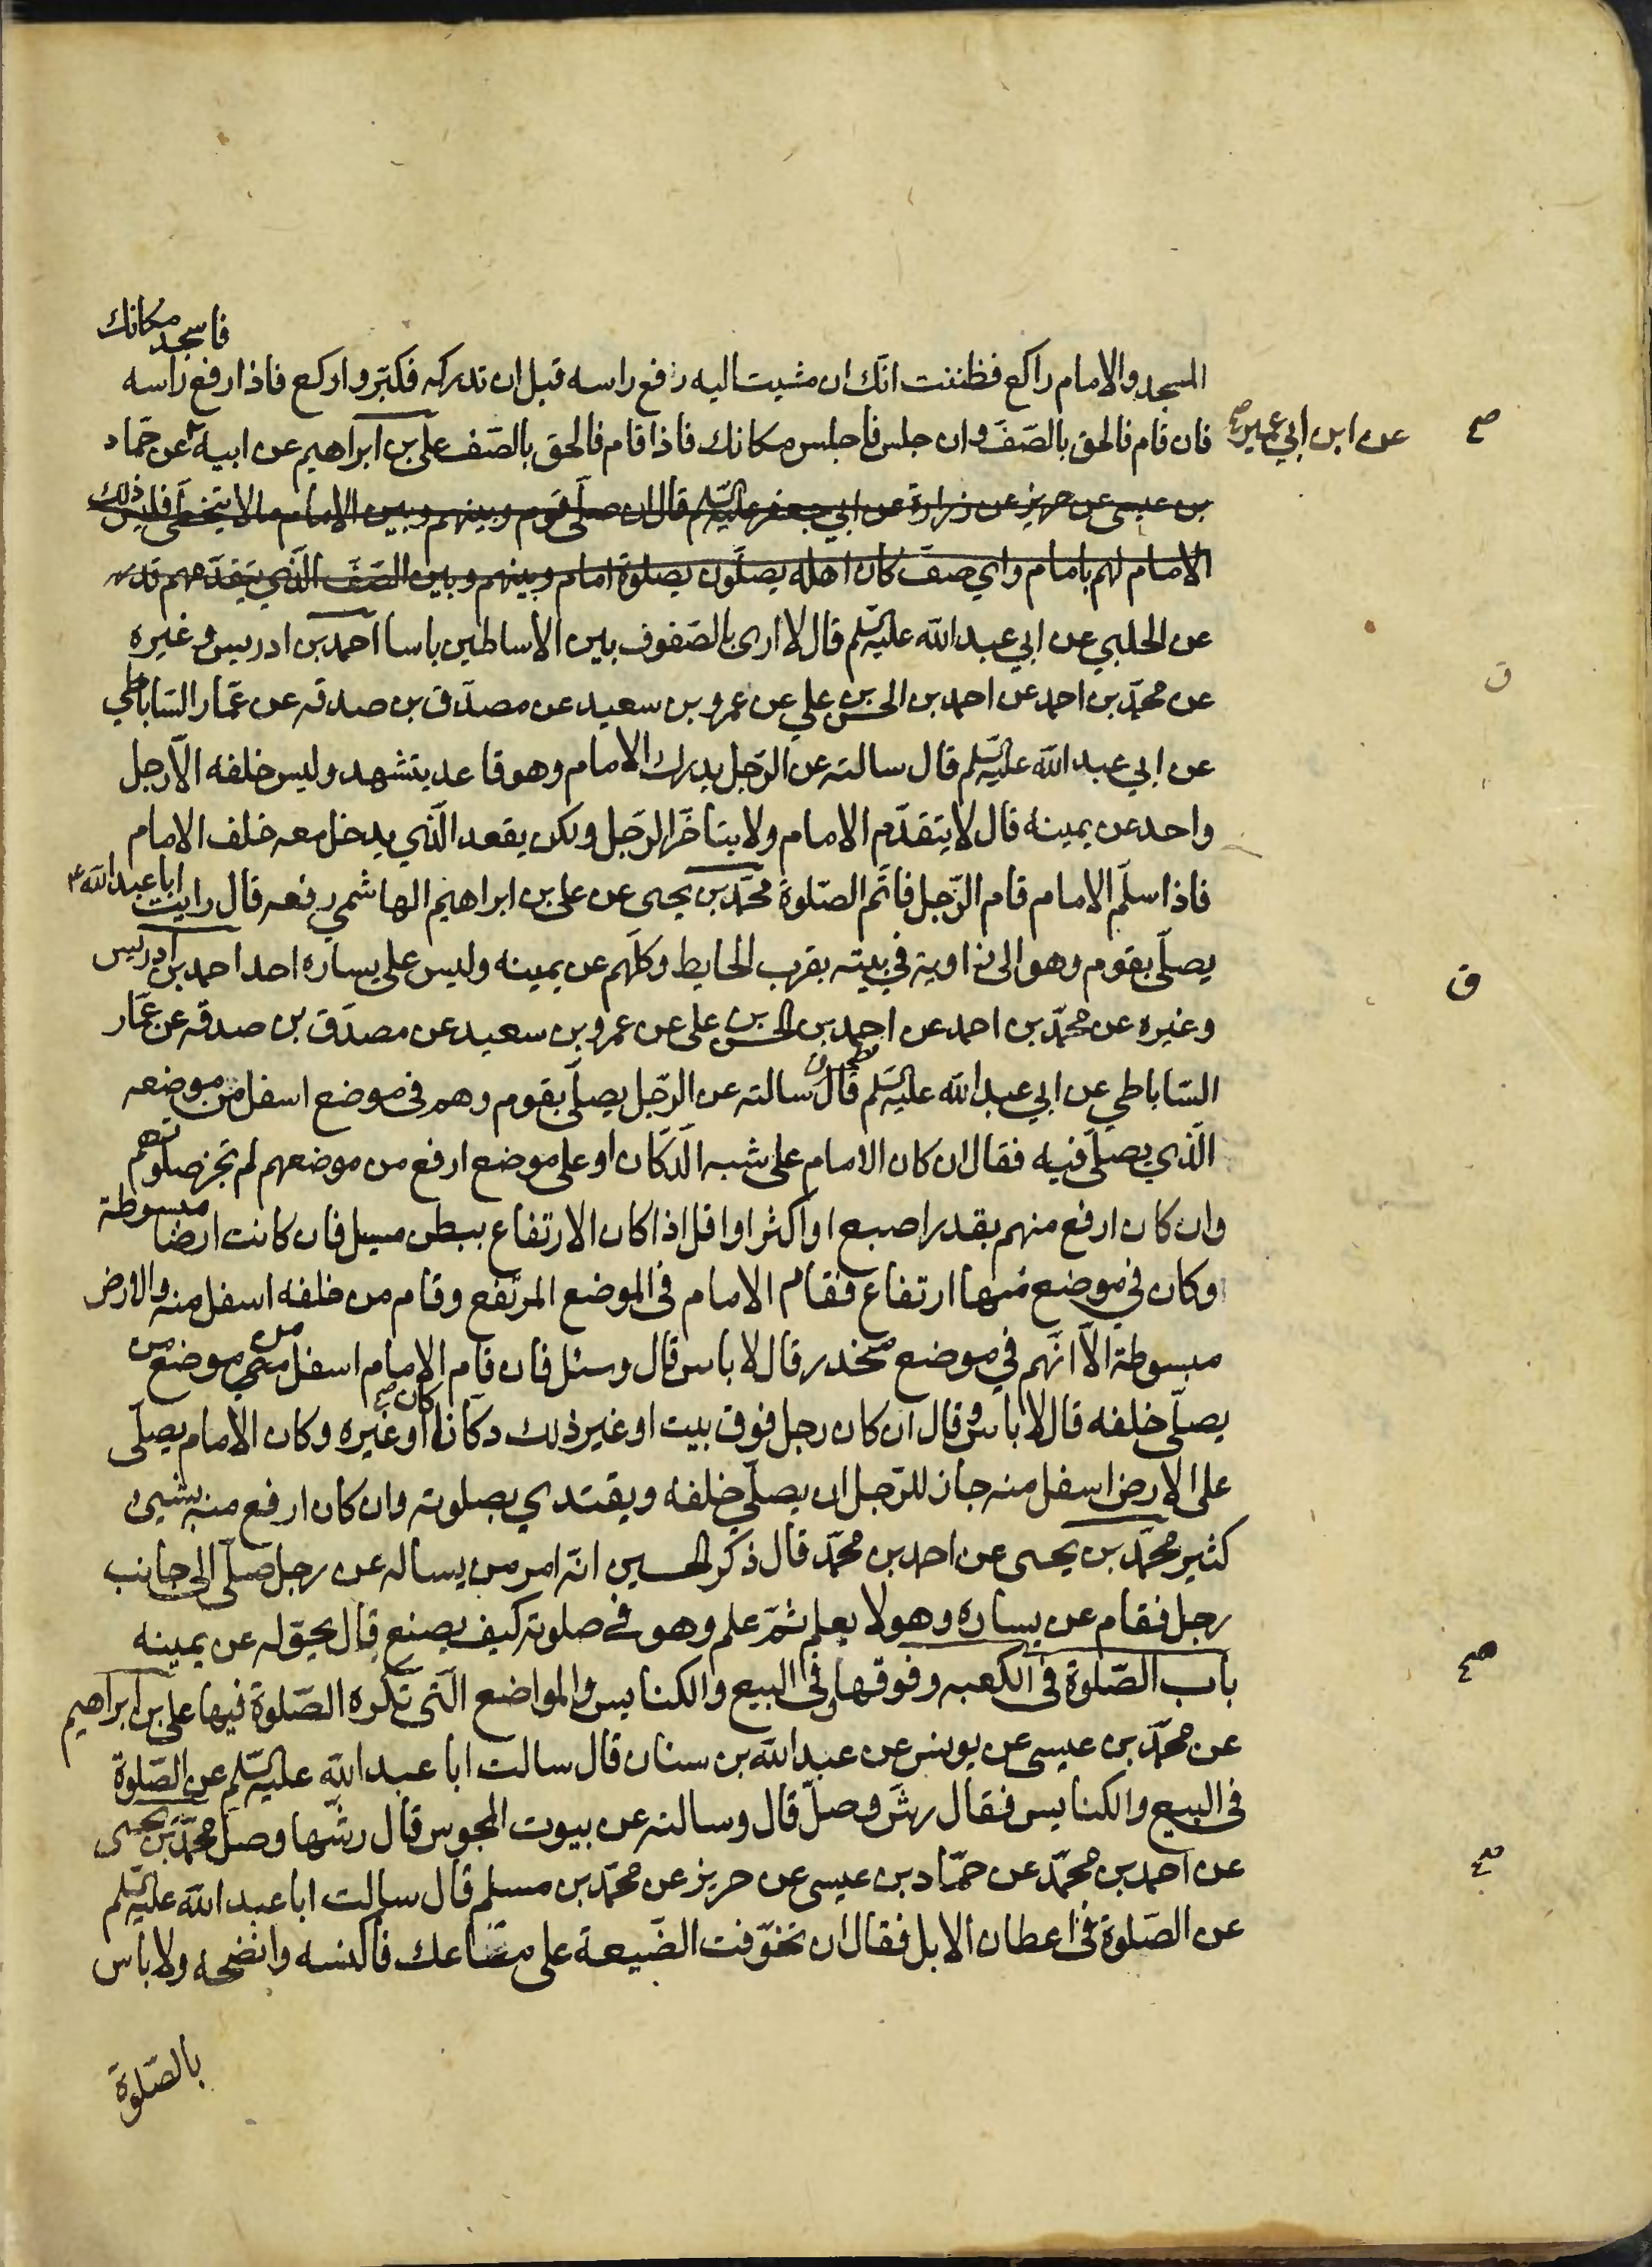 فاسجد مكانك
المسجد والامام راكع فظننت انّك ان مشيت اليه رفع راسه قبل ان تدركه فكبّر واركع فاذا رفع راسه
فان قام فالحق بالصّفّ وان جلس فاجلس مكانك فاذا قام فالحق بالصّف علي بن ابراهيم عن ابيه عن حمّاد
عن ابن ابي عمير صح
بن عيسى عن حريز عن زرارة عن ابي جعفر عليه السّلم قال ان صلّى قوم وبينهم وبين الامام ما لا يتخطّى فليس ذلك
الامام لهم بامام واي صفّ كان اهله يصلّون بصلوة امام وبينهم وبين الصّفّ الّذي يتقدّمهم قدر
عن الحلبي عن ابي عبد الله عليه السّلم قال لا ارى بالصّفوف بين الاساطين باسا احمد بن ادريس وغيره
عن محمّد بن احمد عن احمد بن الحسن بن علي عن عمرو بن سعيد عن مصدّق بن صدقه عن عمّار السّاباطي
عن ابي عبد الله عليه السّلم قال سالته عن الرّجل يدرك الامام وهو قاعد يتشهد وليس خلفه الّا رجل
واحد عن يمينه قال لا يتقدّم الامام ولا يتاخّر الرّجل ولكن يقعد الّذي يدخل معه خلف الامام
فاذا سلّم الامام قام الرّجل فاتّم الصّلوة محمّد بن يحيى عن علي بن ابراهيم الهاشمي رفعه قال رايت ابا عبد الله ع
يصلّى بقوم وهو الى زاوية في بيته بقرب الحايط وكلّهم عن يمينه وليس على يساره احد احمد بن ادريس
وغيره عن محمّد بن احمد عن احمد بن الحسن بن علي عن عمرو بن سعيد عن مصدّق بن صدقه عن عمّار
السّاباطي عن ابي عبد الله عليه السّلم قال سالته عن الرّجل يصلّى بقوم وهم في موضع اسفل من موضعه
الّذي يصلّى فيه فقال ان كان الامام على شبه الدّكّان او على موضع ارفع من موضعهم لم تجز صلوتهم
وان كان ارفع منهم بقدر اصبع او اكثر او اقل اذا كان الارتفاع ببطن مسيل فان كانت ارضا مبسوطة
وكان في موضع منها ارتفاع فقام الامام في الموضع المرتفع وقام من خلفه اسفل منه والارض
مبسوطة الّا انّهم في موضع منحدر قال لا باس قال وسئل فان قام الامام اسفل من موضع من
يصلّى خلفه قال لا باس وقال ان كان رجل فوق بيت او غير ذلك دكّانا كان او غيره وكان الامام يصلّى
على الارض اسفل منه جاز للرّجل ان يصلّي خلفه ويقتدي بصلوته وان كان ارفع منه بشيئ
كثير محمّد بن يحيى عن احمد بن محمّد قال ذكر الحسين انّه امر من يساله عن رجل صلّى الى جانب
رجل فقام عن يساره وهو لا يعلم ثمّ علم وهو في صلوته كيف يصنع قال يحوّله عن يمينه
باب الصّلوة في الكعبه وفوقها وفي البيع والكنايس والمواضع الّتي تكره الصّلوة فيها علي بن ابراهيم
عن محمّد بن عيسى عن يونس عن عبد الله بن سنان قال سالت ابا عبد الله عليه السّلم عن الصّلوة
في البيع والكنايس فقال رشّ وصلّ قال وسالته عن بيوت المجوس قال رشّها وصلّ محمّد بن يحيى
عن احمد بن محمّد عن حمّاد بن عيسى عن حريز عن محمّد بن مسلم قال سالت ابا عبد الله عليه السّلم
عن الصّلوة في اعطان الابل فقال ان تخوّفت الضّيعة على متاعك فاكنسه وانضحه ولا باس
بالصّلوة